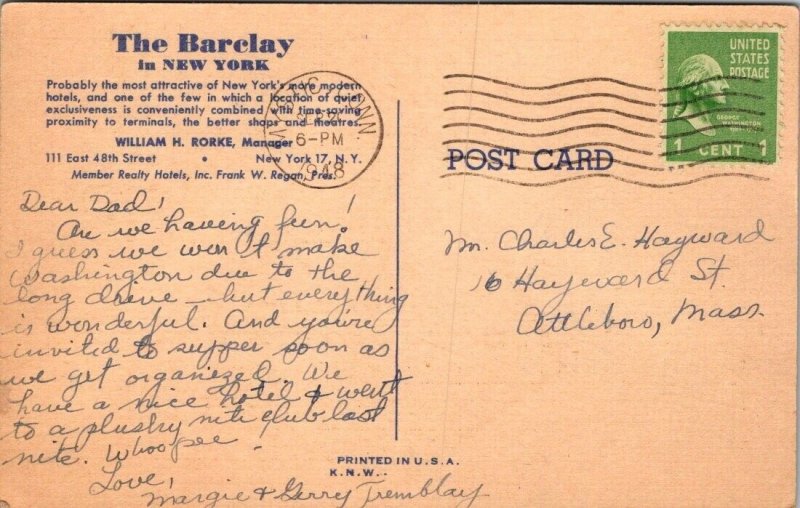 The Barclay
in NEW YORK
Probably the most attractive of New York's more modern
hotels, and one of the few in which a location of quiet
exclusiveness is conveniently combined with time-saving
proximity to terminals, the better shops and theatres.
WILLIAM H. RORKE, Manager
111 East 48th Street • New York 17, N. Y.
Member Realty Hotels, Inc. Frank W. Regan, Pres.
CONN
6-PM
1948
UNITED
STATES
POSTAGE
GEORGE
WASHINGTON
1 CENT 1
POST CARD
Dear Dad!
Are we having fun!
I guess we won't make
Washington due to the
long drive – but everything
is wonderful. And you're
invited to supper soon as
we get organized. We
have a nice hotel & went
to a plushy nite club last
nite. Whoopee
Love,
Margie & Gerry Tremblay
Mr. Charles E. Hayward
16 Hayward St.
Attleboro, Mass.
PRINTED IN U.S.A.
K.N.W..